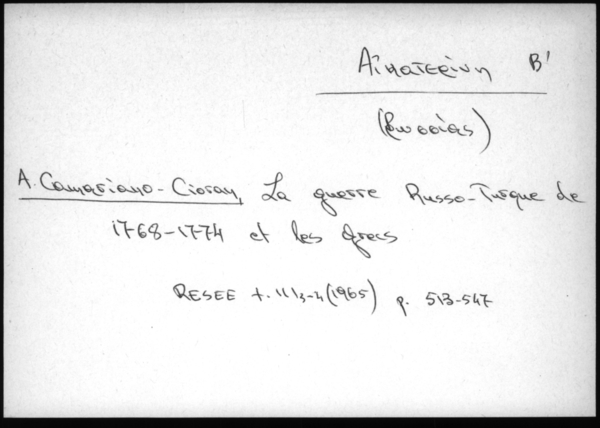 Αἰκατερίνη Β'
(Ρωσσίας)
A. Camariano-Cioran, La guerre Russo-Turque de
1768-1774 et les Grecs
RESEE t. III/3-4 (1965) p. 513-547